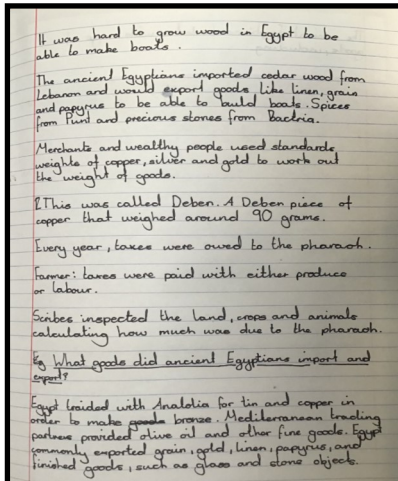 It was hard to grow wood in Egypt to be
able to make boats.
The ancient Egyptians imported cedar wood from
Lebanon and would export goods like linen, grain
and papyrus to be able to build boats. Spices
from Punt and precious stones from Bactria.
Merchants and wealthy people used standard
weights of copper, silver and gold to work out
the weight of goods.
This was called Deben. A Deben piece of
copper that weighed around 90 grams.
Every year, taxes were owed to the pharaoh.
Farmer: taxes were paid with either produce
or labour.
Scribes inspected the land, crops and animals
calculating how much was due to the pharaoh.
What goods did ancient Egyptians import and
export?
Egypt traided with Analotia for tin and copper in
order to make bronze. Mediterranean trading
partners provided olive oil and other fine goods. Egypt
commonly exported grain, gold, linen, papyrus, and
finished goods, such as glass and stone objects.